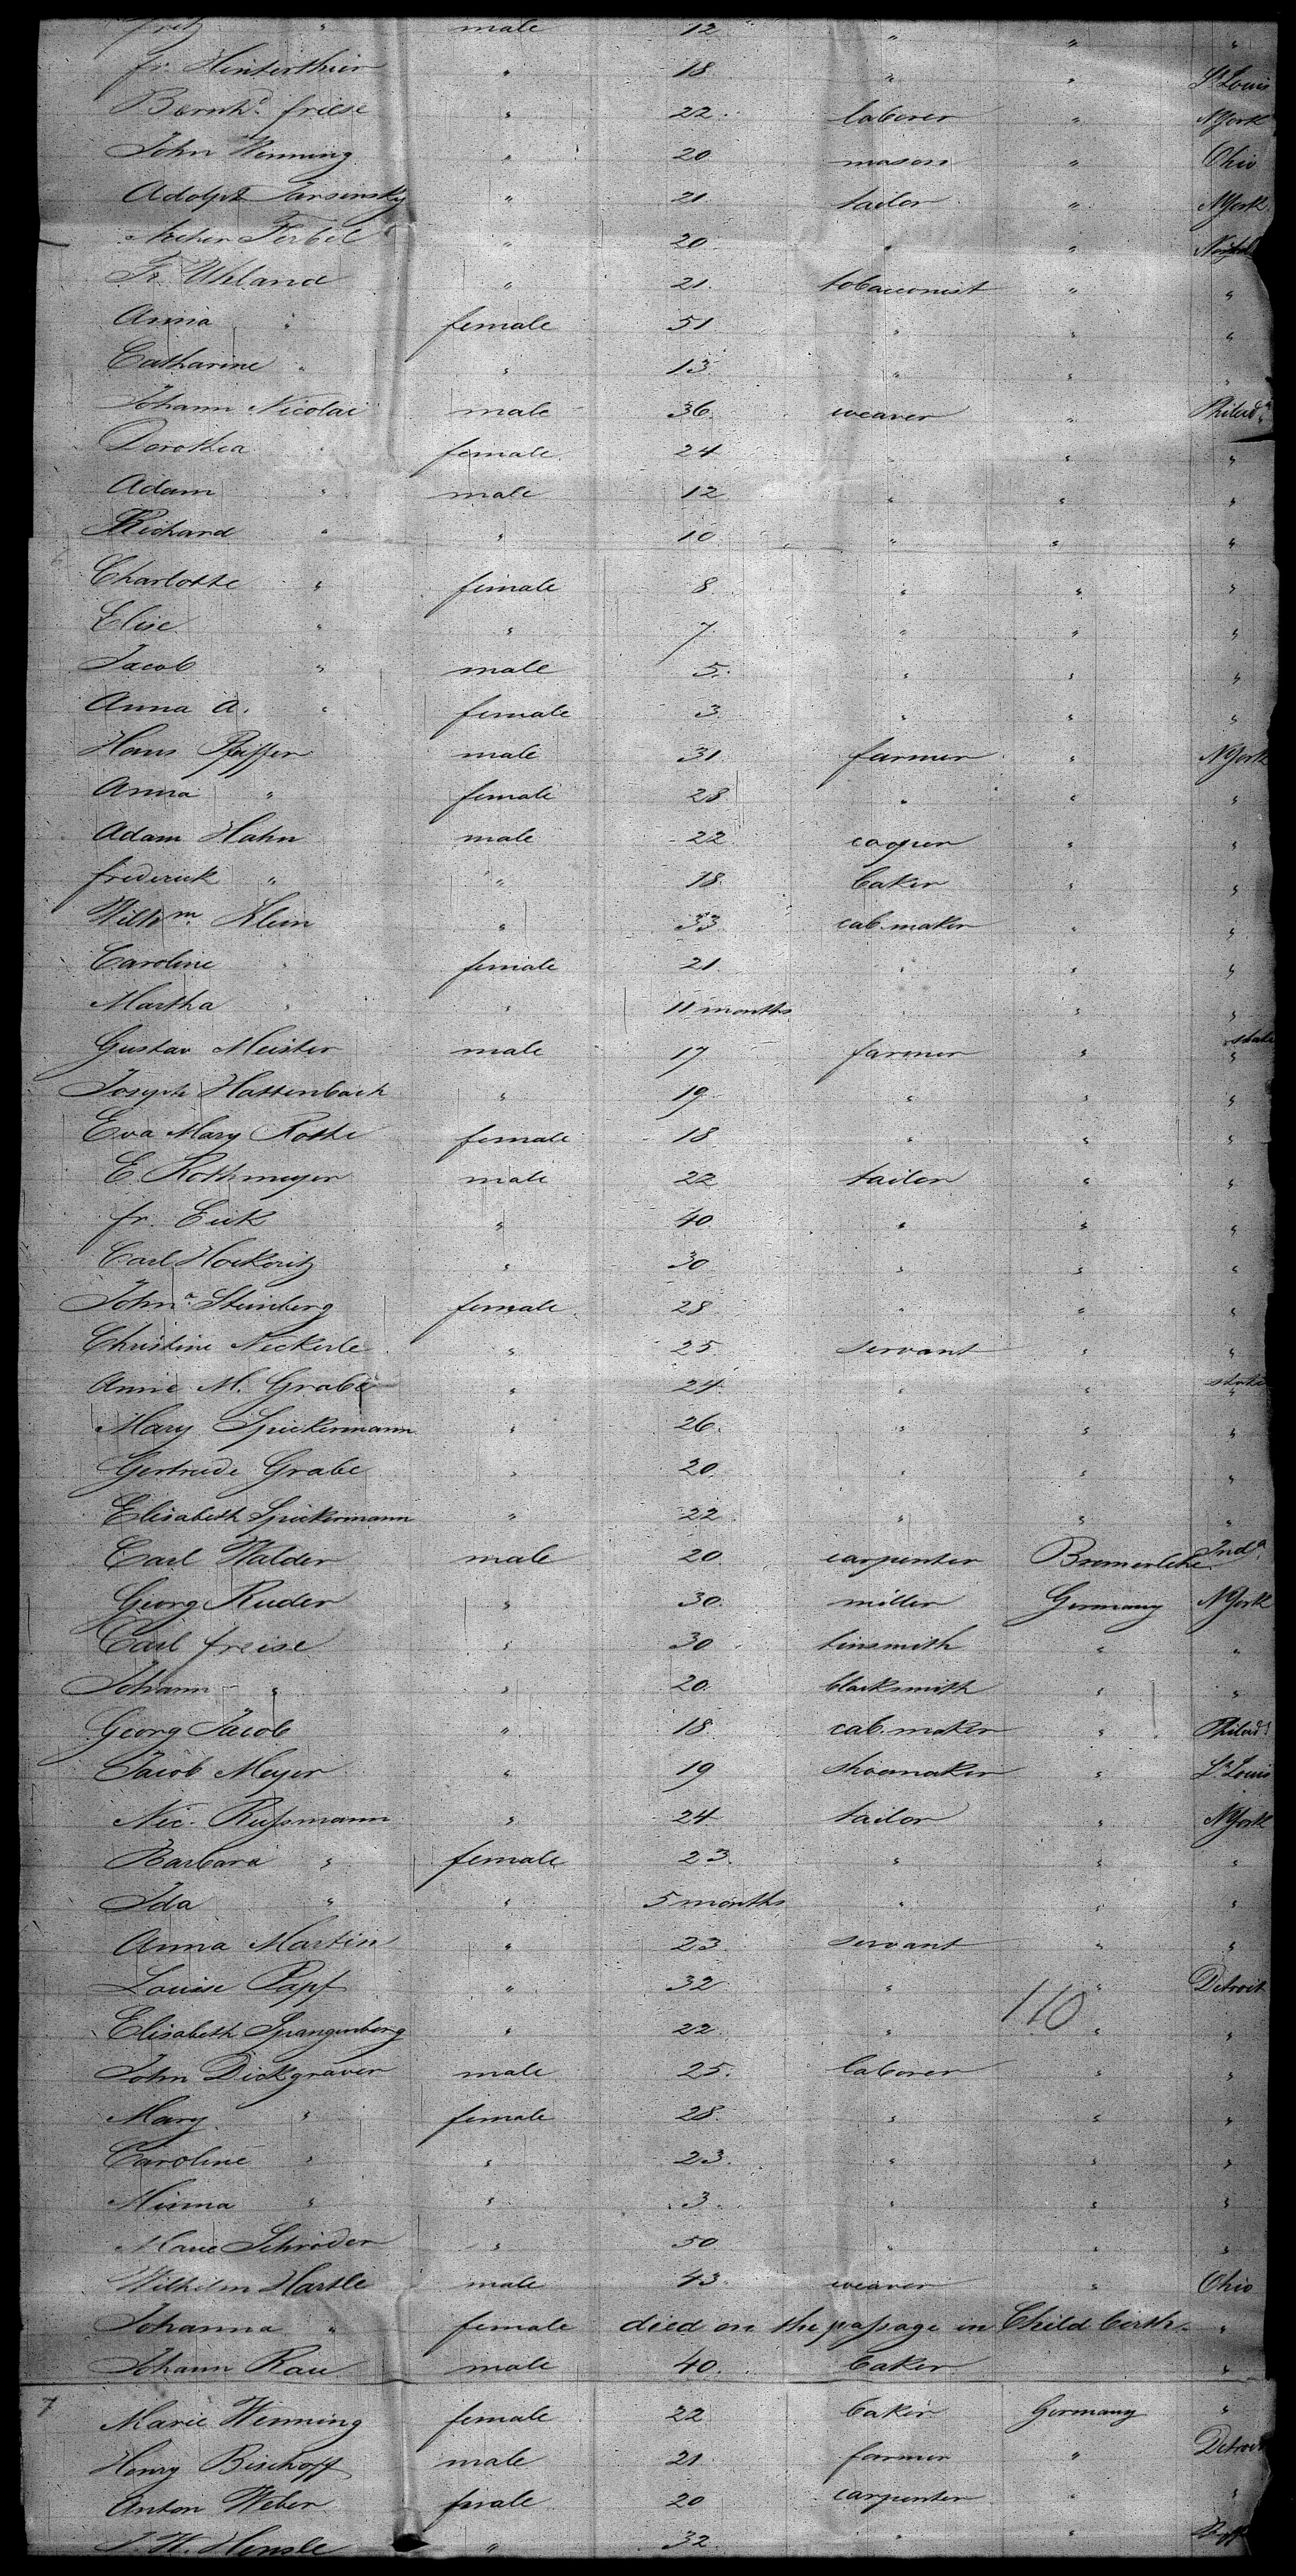 Fritz " male 12 " " "
Fr. Hinterthier " 18 " " St Louis
Bernhd. Friese " 22 laborer " NYork
John Wenning " 20 mason " Ohio
Adolph Jarsinsky " 21 tailor " NYork
Ferbel " 20 " "
Fr. Uhland " 21 tobacconist " "
Anna " female 51 " " "
Catharine " " 13 " " "
Johann Nicolai male 36 weaver " Philada
Dorothea " female 24 " " "
Adam " male 12 " " "
Richard " " 10 " " "
Charlotte " female 8 " " "
Elise " " 7 " " "
Jacob " male 5 " " "
Anna A. " female 3 " " "
Hans Pfeffer male 31 farmer " NYork
Anna " female 28 " " "
Adam Hahn male 22 cooper " "
Frederick " " 18 baker " "
Wilhm. Klein " 33 cab. maker " "
Caroline " female 21 " " "
Martha " " 11 months " " "
Gustav Meister male 17 farmer " " state
Joseph Hattenbach " 19 " " "
Eva Mary Rothe female 18 " " "
E. Rothmeyer male 22 tailor " "
Fr. Eick " 40 " " "
Carl " 30 " " "
Johna. Steinberg female 28 " " "
Christine Neckerle " 25 servant " "
Anne M. Grabe " 24 " " " state
Mary Spickermann " 26 " " "
Gertrude Grabe " 20 " " "
Elisabeth Spickermann " 22 " " "
Carl Walder male 20 carpenter Bremerlehe Inda.
Georg Ruder " 30 miller Germany NYork
Carl Freise " 30 tinsmith " "
Johann " " 20 blacksmith " "
Georg Jacob " 18 cab. maker " Philada
Jacob Meyer " 19 shoemaker " St Louis
Nic. Russmann " 24 tailor " NYork
Barbara " female 23 " " "
Ida " " 5 months " " "
Anna Martin " 23 servant " "
Louise Papf " 32 " " Detroit
110
Elisabeth Spangenberg " 22 " " "
John Dickgraver male 25 laborer " "
Mary " female 28 " " "
Caroline " " 23 " " "
Minna " " 3 " " "
Marie Schröder " 50 " " "
Wilhelm Hartle male 43 weaver " Ohio
Johanna " female died on the passage in Child birth. "
Johann Rau male 40 baker "
7 Marie Wenning female 22 baker Germany "
Henry Bischoff male 21 farmer " Detroit
Anton Weber male 20 carpenter " "
J. H. Hensle " 32 " " Buff